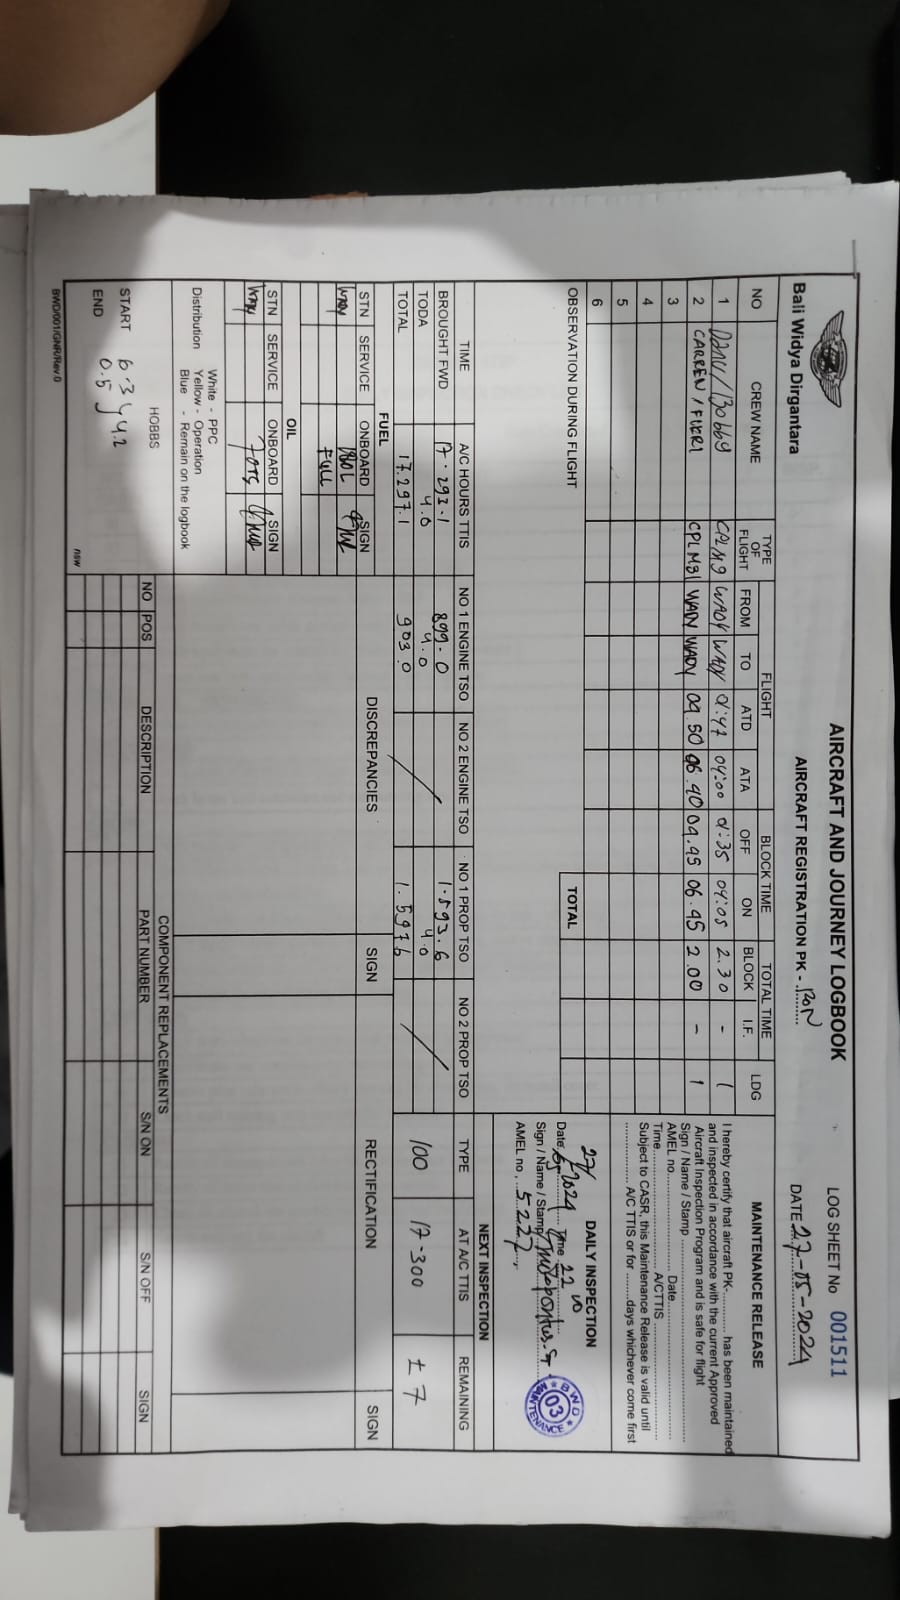 Bali Widya Dirgantara
AIRCRAFT AND JOURNEY LOGBOOK
AIRCRAFT REGISTRATION PK -
LOG SHEET No 001511
DATE 27-05-2024
NO CREW NAME TYPE OF FLIGHT FLIGHT BLOCK TIME TOTAL TIME LDG
FROM TO ATD ATA OFF ON BLOCK I.F.
1 Bobby WADY WADY 04:00 04:05 2.30 - 1
2 CARREN / WADY WADY 06.40 06.45 2.00 - 1
3
4
5
6
OBSERVATION DURING FLIGHT
TOTAL
MAINTENANCE RELEASE
I hereby certify that aircraft PK-........... has been maintained
and inspected in accordance with the current Approved
Aircraft Inspection Program and is safe for flight
Sign / Name / Stamp
AMEL no. Date
Time A/CTTIS
Subject to CASR, this Maintenance Release is valid until
A/C TTIS or for ........days whichever come first
DAILY INSPECTION
Date Time 22
Sign / Name / Stamp
AMEL no. 5227
BWD
03
MAINTENANCE
TIME A/C HOURS TTIS NO 1 ENGINE TSO NO 2 ENGINE TSO NO 1 PROP TSO NO 2 PROP TSO
BROUGHT FWD 17.293.1 899.0 1.593.6
TODA 4.0 4.0 4.0
TOTAL 17.297.1 903.0 1.597.6
NEXT INSPECTION
TYPE AT A/C TTIS REMAINING
100 17-300 ± 7
FUEL
STN SERVICE ONBOARD SIGN
WADY
FULL
OIL
STN SERVICE ONBOARD SIGN
WADY 7QTS
DISCREPANCIES SIGN RECTIFICATION SIGN
Distribution White - PPC
Yellow - Operation
Blue - Remain on the logbook
HOBBS
START 6.3
END 0.5
4.2
COMPONENT REPLACEMENTS
NO POS DESCRIPTION PART NUMBER S/N ON S/N OFF SIGN
BWD/001/GNR/Rev.0
nsw